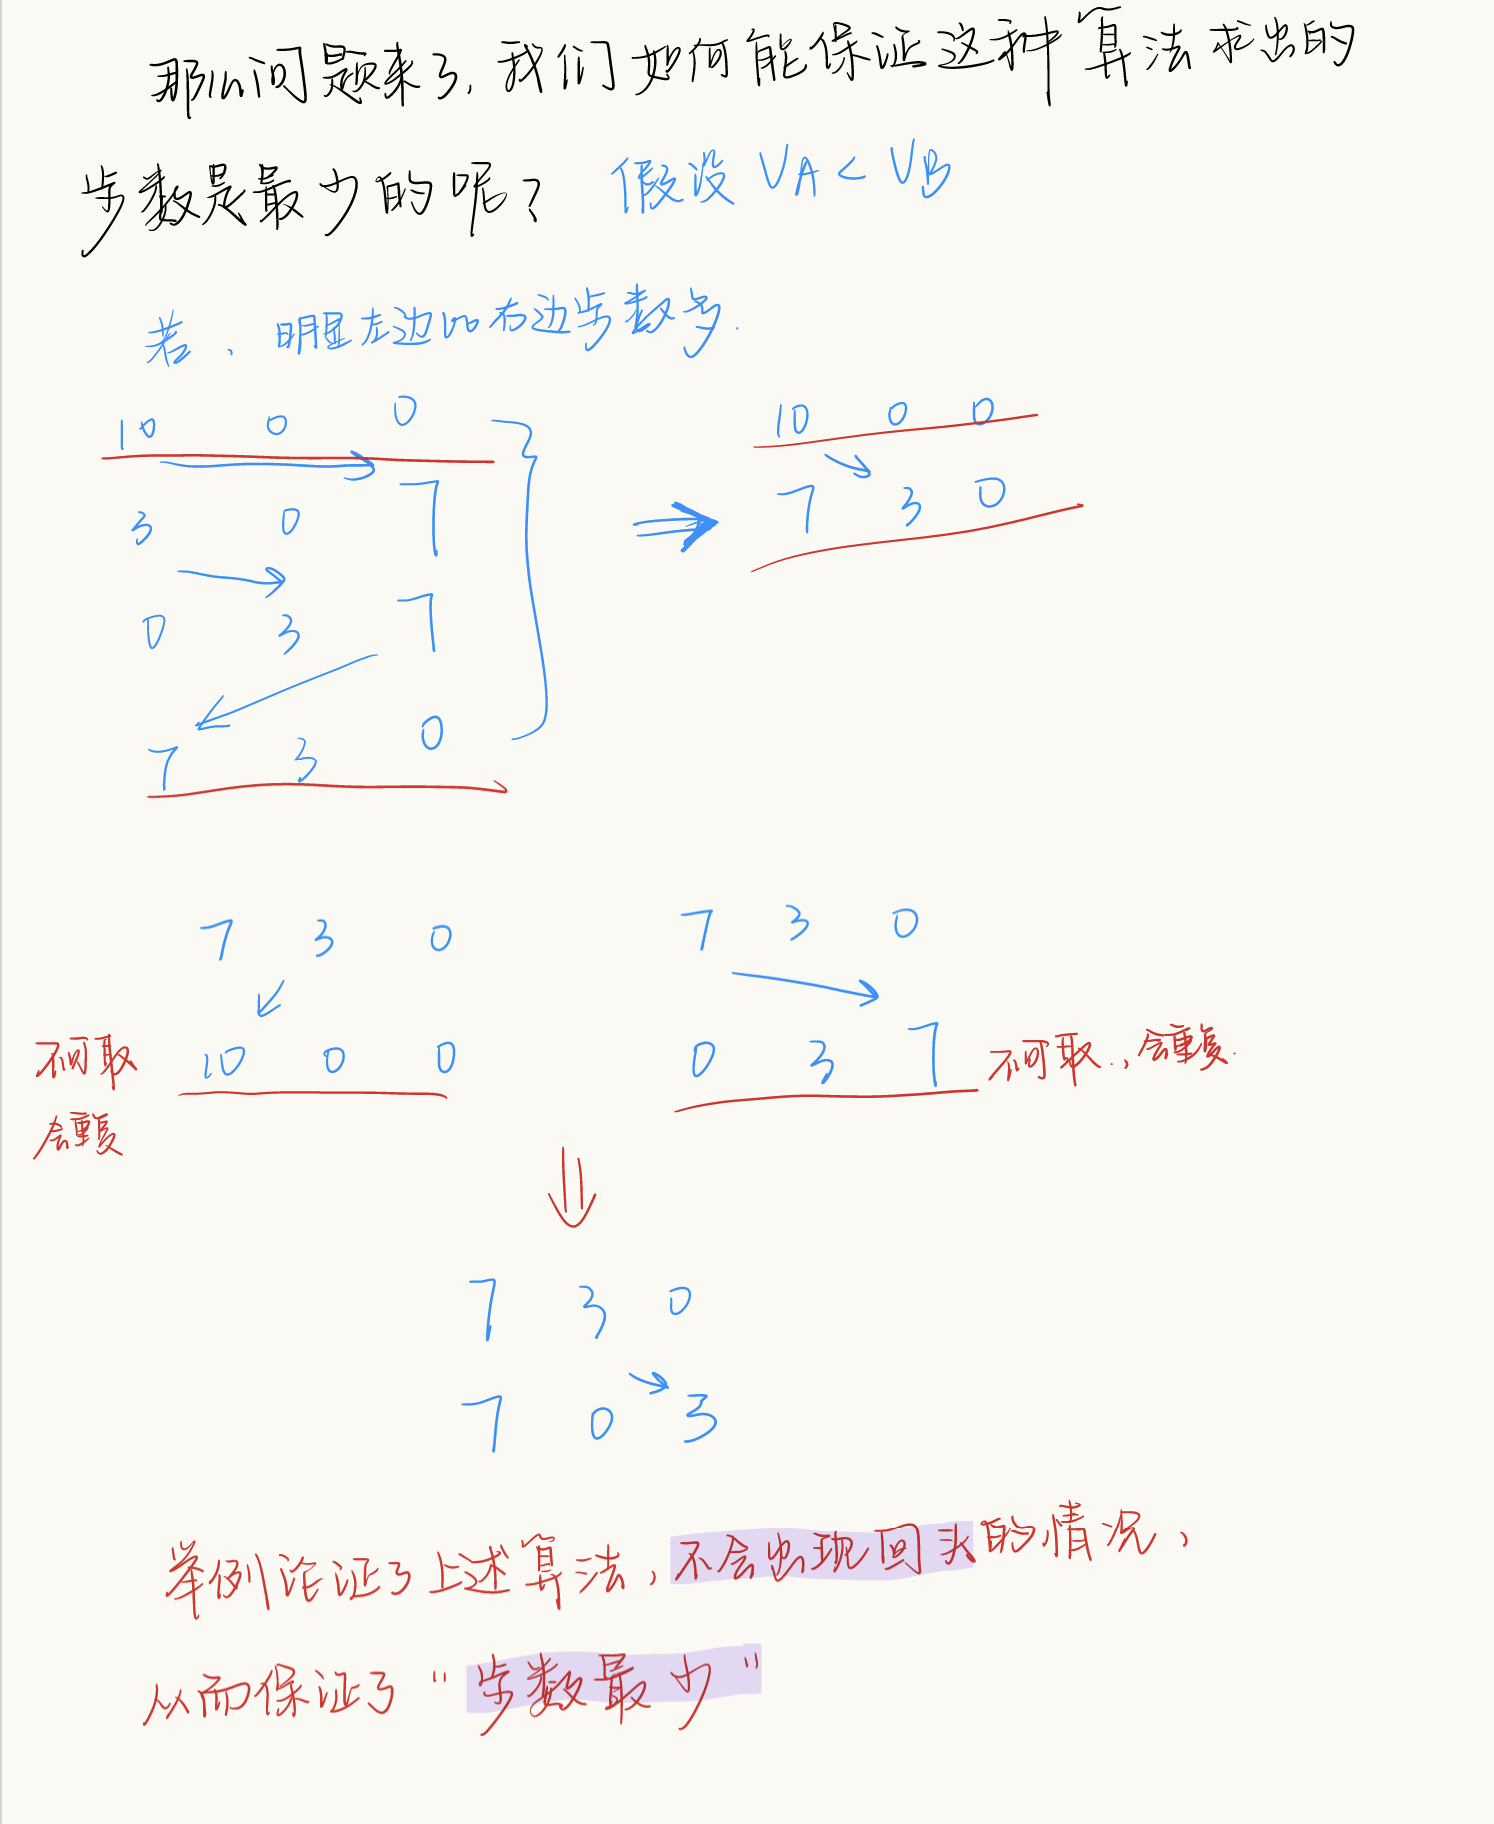 那么问题来了,我们如何能保证这种算法求出的
步数是最少的呢? 假设 VA < VB
若、明显左边比右边步数多.
10 0 0
3 0 7
0 3 7
7 3 0
10 0 0
7 3 0
7 3 0
10 0 0
不可取
会重复
7 3 0
0 3 7
不可取.,会重复.
7 3 0
7 0 3
举例论证了上述算法,不会出现回头的情况,
从而保证了"步数最少"